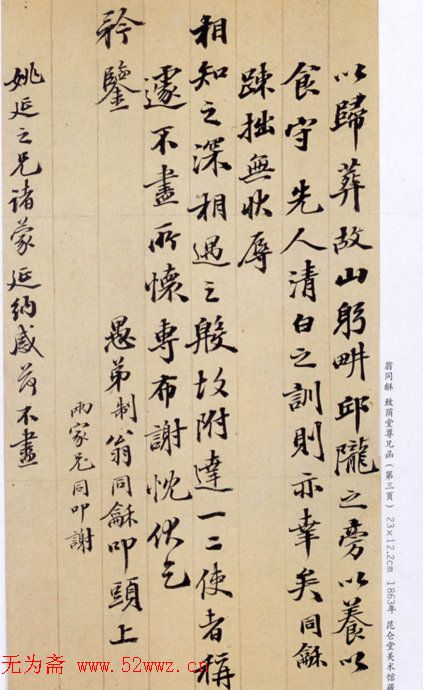 以歸葬故山躬畊邱隴之旁以養以
食守先人清白之訓則亦幸矣同龢
疎拙無狀辱
相知之深相遇之殷故附達一二使者稱
遽不盡所懷專布謝忱伏乞
矜鑒
愚弟制翁同龢叩頭上
兩家兄同叩謝
姚延之兄諸蒙延納感荷不盡
翁同龢 致荫堂尊兄函（第三页） 23×12.2cm 1863年 昆仑堂美术馆藏
无为斋 www.52wwz.cn